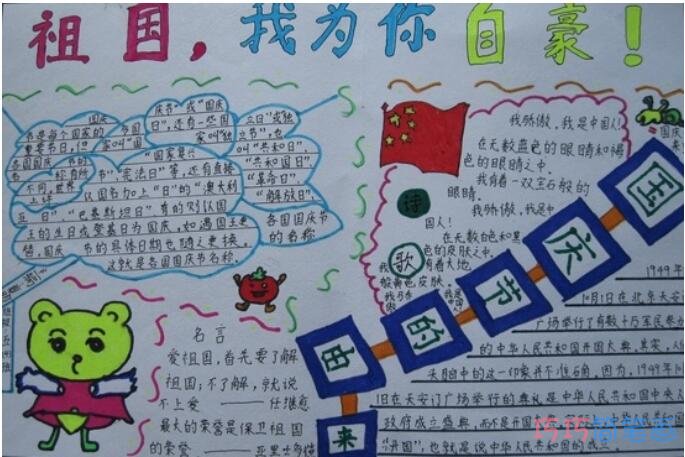 祖国，我为你自豪！
国庆
节是每个国家的
重要节日，但
各国国庆
不同。世界
上许
各国
名叫"国
庆节"或"国庆
日"，还有一些国
家叫"独
立日"或独
立节"，也
叫"共和日"
"共和国日"
"革命日"
"解放日"，
"国家复兴
节""宪法日"等，还有直接
以国名加上"日"的"澳大利
亚日"，"巴基斯坦日"，有的则以国
王的生日或登基日为国庆，如遇国王更
替，国庆 节的具体日期也随之更换。
各国国庆节
的名称
这就是各国国庆节名称。
名言
爱祖国，首先要了解
祖国；不了解，就说
不上爱 ——任继愈
最大的荣誉是保卫祖国
的荣誉 ——亚里士多德
诗
歌
我骄傲，我是中国人！
在无数蓝色的眼睛和褐
色的眼睛之中，
我有着一双宝石般的
眼睛。
我骄傲，我是中
国人！
在无数白色和黑
色的皮肤之中，
我有着大地
般黄色皮肤。
我骄傲
我是
中国人！
国庆节的由来
1949年
10月1日在北京天安
广场举行了有数十万军民参
的中华人民共和国开国大典。其实，人们
头脑中的这一印象并不准确。因为，1949年10月
1日在天安门广场举行的典礼是中华人民共和国中央人
政府成立盛典，而不是开国
"开国"，也就是说中华人民共和国的成立
巧巧简笔画